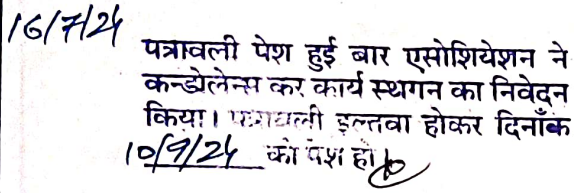 16/7/24
पत्रावली पेश हुई बार एसोशियेशन ने
कन्डोलेन्स कर कार्य स्थगन का निवेदन
किया। पत्रावली इल्तवा होकर दिनाँक
10/9/24 को पेश हो